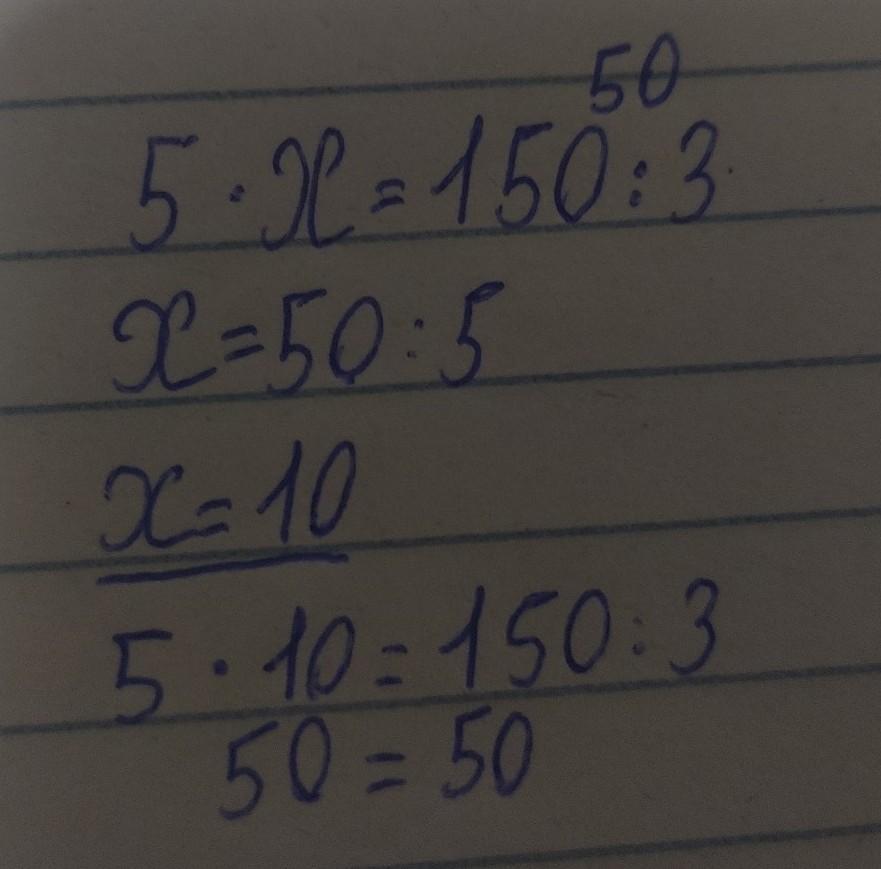 50
5 · x = 150 : 3
x = 50 : 5
x = 10
5 · 10 = 150 : 3
50 = 50